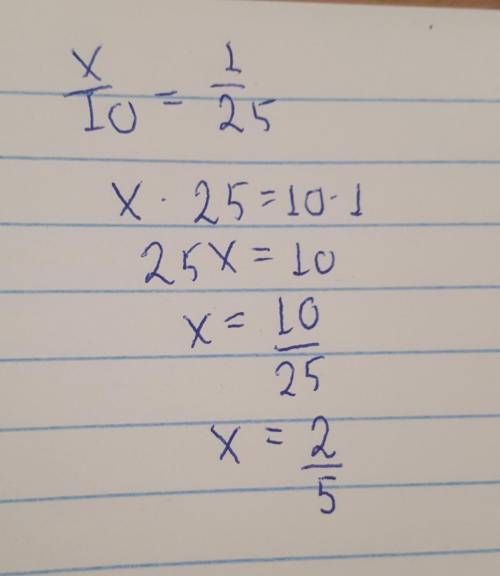 x/10 = 1/25
x · 25 = 10 · 1
25x = 10
x = 10/25
x = 2/5